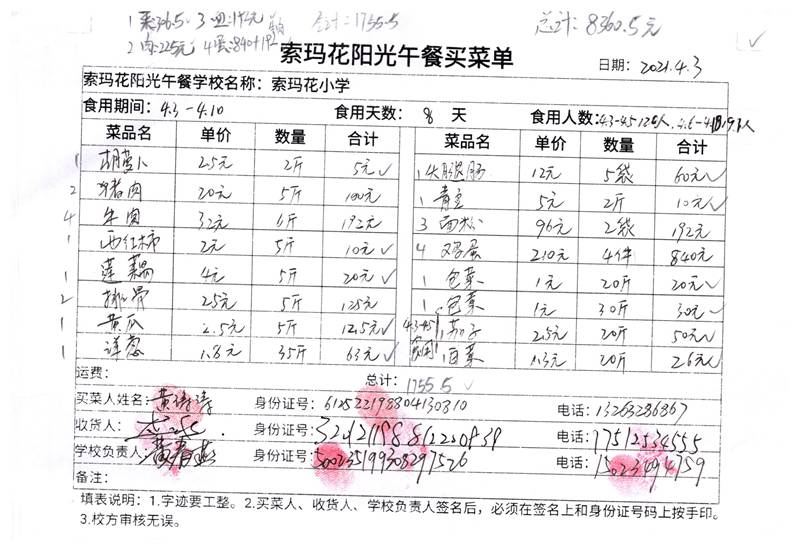 1菜306.5. 3皿:192元 合计=1755.5 总计:8360.5元
2肉:225元 4蛋:840+192
索玛花阳光午餐买菜单
日期: 2021.4.3
索玛花阳光午餐学校名称: 索玛花小学
食用期间: 4.3-4.10 食用天数: 8 天 食用人数:
菜品名 单价 数量 合计 菜品名 单价 数量 合计
1 胡萝卜 2.5元 2斤 5元✓ 1 火腿肠 12元 5袋 60元✓
2 猪肉 20元 5斤 100元 1 青豆 5元 2斤 10元✓
4 牛肉 32元 6斤 192元 3 面松 96元 2袋 192元
1 西红柿 2元 5斤 10元✓ 4 鸡蛋 210元 4件 840元
1 莲藕 4元 5斤 20元✓ 1 包菜 1元 20斤 20元✓
2 排骨 25元 5斤 125元 1 包菜 1元 30斤 30元✓
1 黄瓜 2.5元 5斤 12.5元✓ 4.3-4.5 茄子 2.5元 20斤 50元✓
1 洋葱 1.8元 35斤 63元✓ 白菜 1.3元 20斤 26元✓
运费: 总计: 1755.5 ✓
买菜人姓名: 黄诗涛 身份证号: 612522198804130810 电话: 13263286867
收货人: 身份证号: 电话: 17512534555
学校负责人: 黄春燕 身份证号: 500235199308297526 电话: 15023494759
备注:
填表说明: 1.字迹要工整。2.买菜人、收货人、学校负责人签名后，必须在签名上和身份证号码上按手印。
3.校方审核无误。